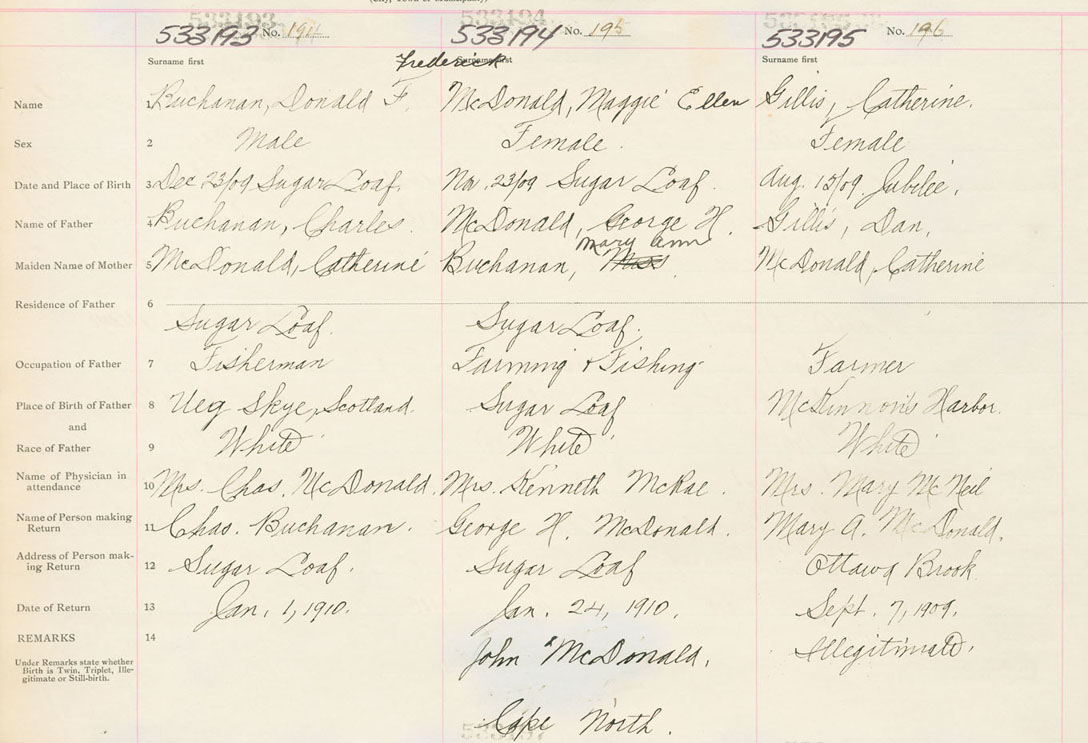 (City, Town or Municipality)
533193 533194 533195
533193 No. 194 533194 No. 195 533195 No. 196
Surname first Frederick Surname first Surname first
Name 1 Buchanan, Donald F. McDonald, Maggie Ellen Gillis, Catherine.
Sex 2 Male Female. Female
Date and Place of Birth 3 Dec 23/09 Sugar Loaf. Nov. 23/09 Sugar Loaf. Aug. 15/09 Jubilee.
Name of Father 4 Buchanan, Charles. McDonald, George H. Gillis, Dan,
Mary Ann
Maiden Name of Mother 5 McDonald, Catherine Buchanan, Miss. McDonald, Catherine
Residence of Father 6
Sugar Loaf. Sugar Loaf.
Occupation of Father 7 Fisherman Farming & Fishing Farmer
Place of Birth of Father 8 Ueg Skye, Scotland. Sugar Loaf McKinnon's Harbor.
and
Race of Father 9 White White White
Name of Physician in attendance 10 Mrs. Chas. McDonald. Mrs. Kenneth McRae. Mrs. Mary McNeil
Name of Person making Return 11 Chas. Buchanan. George H. McDonald. Mary A. McDonald.
Address of Person mak-
ing Return 12 Sugar Loaf. Sugar Loaf Ottawa Brook.
Date of Return 13 Jan. 1, 1910. Jan. 24, 1910. Sept. 7, 1909.
REMARKS 14 John McDonald. Illegitimate.
Under Remarks state whether
Birth is Twin, Triplet, Ille-
gitimate or Still-birth.
Cape North.